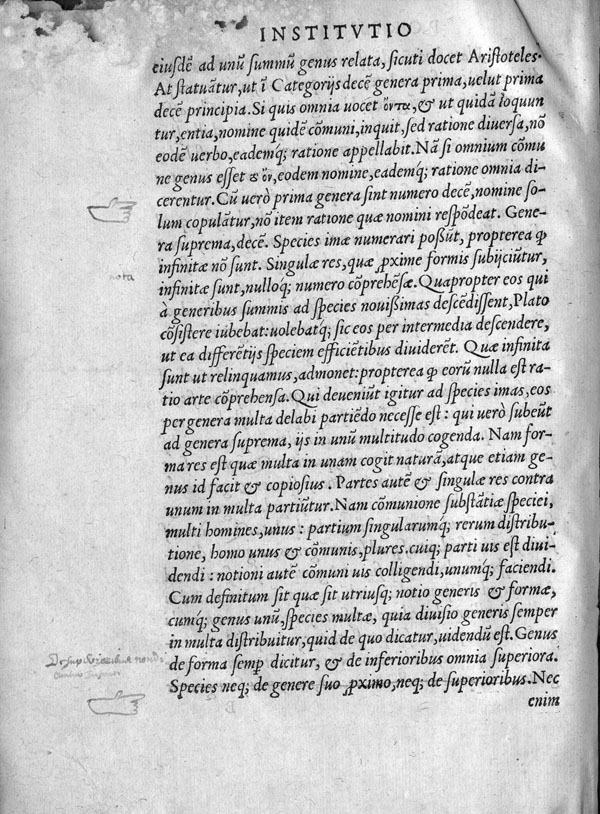 INSTITVTIO
eiusdẽ ad unũ summũ genus relata, sicuti docet Aristoteles.
At statuãtur, ut ĩ Categorijs decẽ genera prima, uelut prima
decẽ principia. Si quis omnia uocet ὄντα, & ut quidã loquun
tur, entia, nomine quidẽ cõmuni, inquit, sed ratione diuersa, nõ
eodẽ uerbo, eademq; ratione appellabit. Nã si omnium cõmu
ne genus esset ὄν, eodem nomine, eademq; ratione omnia di-
cerentur. Cũ uerò prima genera sint numero decẽ, nomine so-
lum copulãtur, nõ item ratione quæ nomini respõdeat. Gene-
ra suprema, decẽ. Species imæ numerari possũt, propterea ꝙ
infinitæ nõ sunt. Singulæ res, quæ ꝓxime formis subijciũtur,
nota
infinitæ sunt, nulloq; numero cõprehẽsæ. Quapropter eos qui
à generibus summis ad species nouissimas descẽdissent, Plato
cõsistere iubebat: uolebatq; sic eos per intermedia descendere,
ut ea differẽtijs speciem efficiẽtibus diuiderẽt. Quæ infinita
sunt ut relinquamus, admonet: propterea ꝙ eorũ nulla est ra-
tio arte cõprehensa. Qui deueniũt igitur ad species imas, eos
per genera multa delabi partiẽdo necesse est: qui uerò subeũt
ad genera suprema, ijs in unũ multitudo cogenda. Nam for-
ma res est quæ multa in unam cogit naturã, atque etiam ge-
nus id facit & copiosius. Partes autẽ & singulæ res contra
unum in multa partiũtur. Nam cõmunione substãtiæ speciei,
multi homines, unus: partium singularumq; rerum distribu-
tione, homo unus & cõmunis, plures. cuiq; parti uis est diui-
dendi: notioni autẽ cõmuni uis colligendi, unumq; faciendi.
Cum definitum sit quæ sit utriusq; notio generis & formæ,
cumq; genus unũ, species multæ, quia diuisio generis semper
in multa distribuitur, quid de quo dicatur, uidendũ est. Genus
de forma semꝑ dicitur, & de inferioribus omnia superiora.
Species neq; de genere suo ꝓximo, neq; de superioribus. Nec
enim